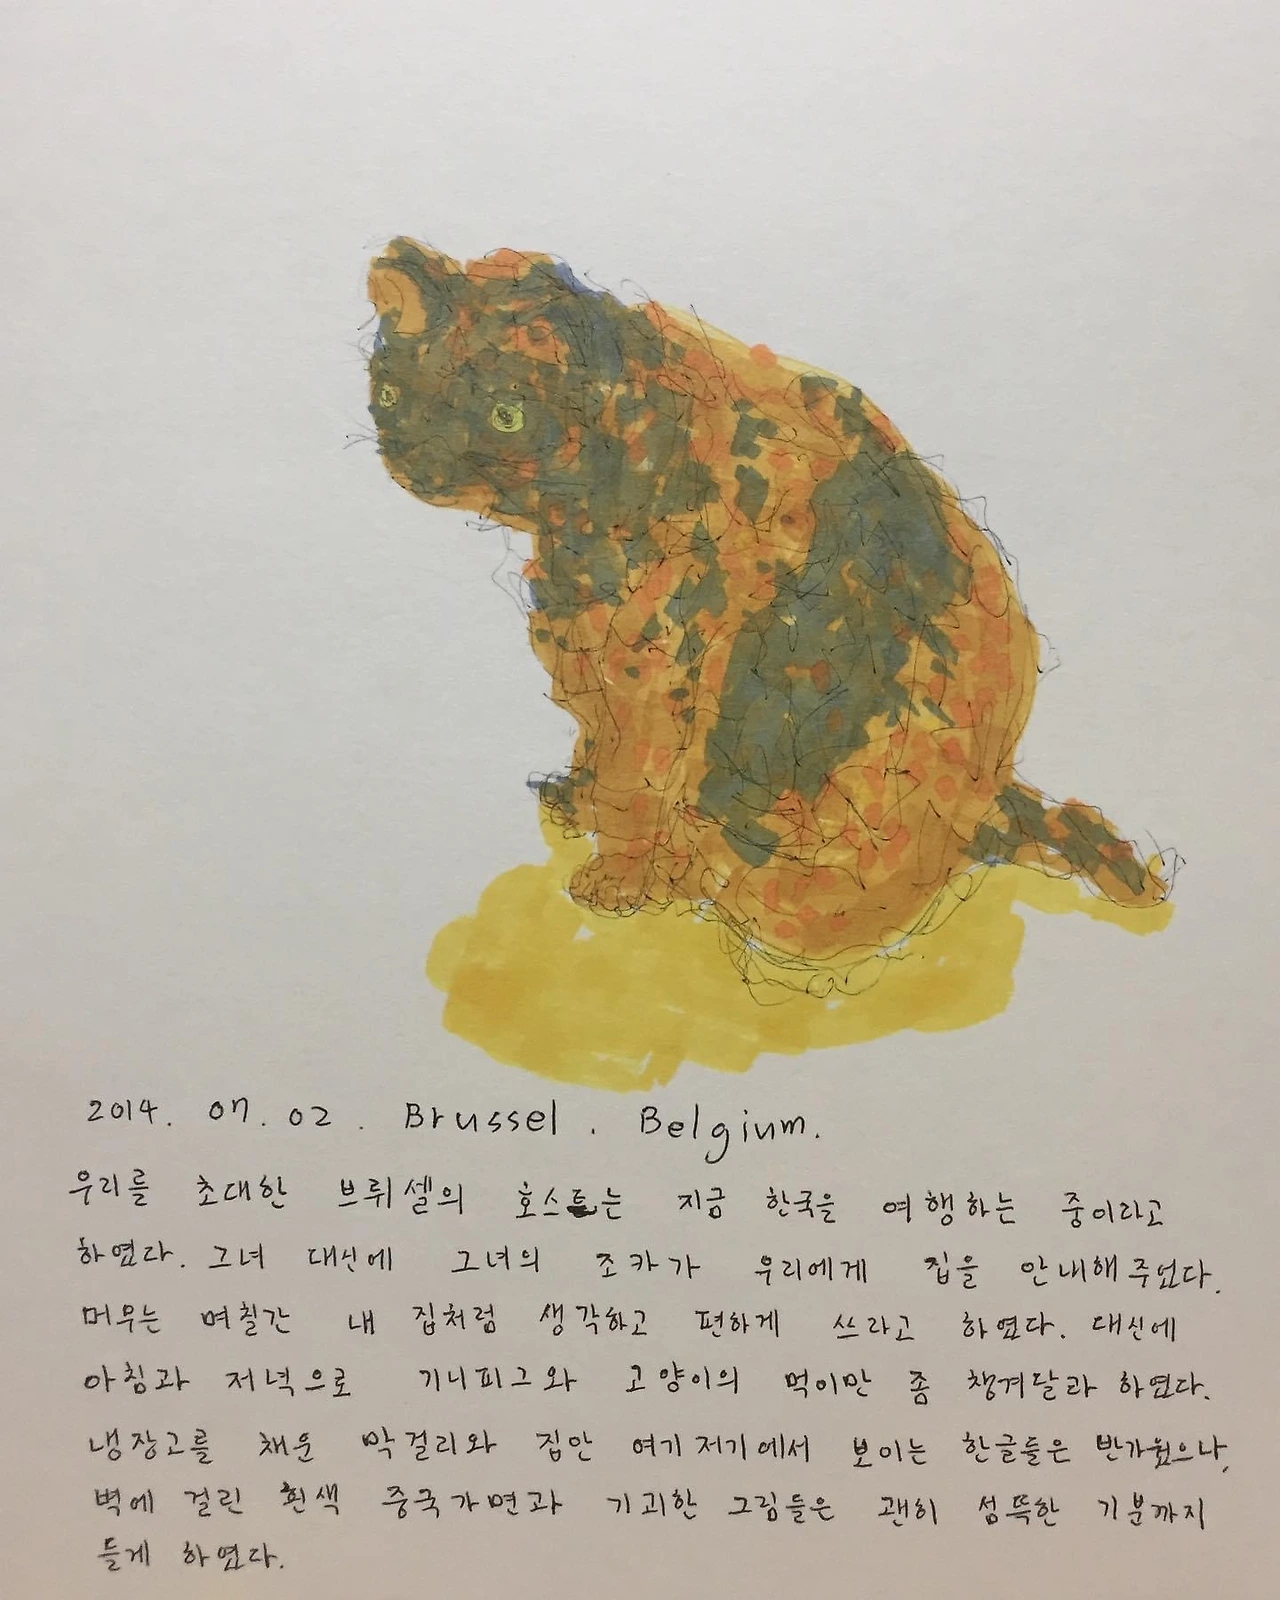 2014. 07. 02. Brussel. Belgium.
우리를 초대한 브뤼셀의 호스트는 지금 한국을 여행하는 중이라고
하였다. 그녀 대신에 그녀의 조카가 우리에게 집을 안내해 주었다.
머무는 며칠간 내 집처럼 생각하고 편하게 쓰라고 하였다. 대신에
아침과 저녁으로 기니피그와 고양이의 먹이만 좀 챙겨달라 하였다.
냉장고를 채운 막걸리와 집안 여기저기에서 보이는 한글들은 반가웠으나,
벽에 걸린 흰색 중국가면과 기괴한 그림들은 괜히 섬뜩한 기분까지
들게 하였다.